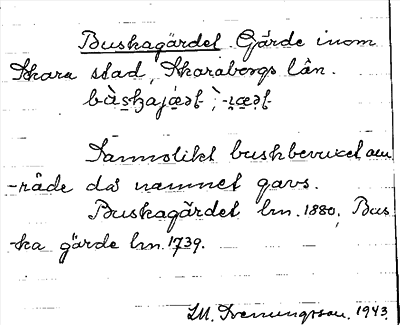 Buskagärdet. Gärde inom
Skara stad, Skaraborgs län.
Sannolikt buskbevuxet om-
råde då namnet gavs.
Buskagärdet lm. 1880, Bus-
ka gärde lm. 1739.
1943.